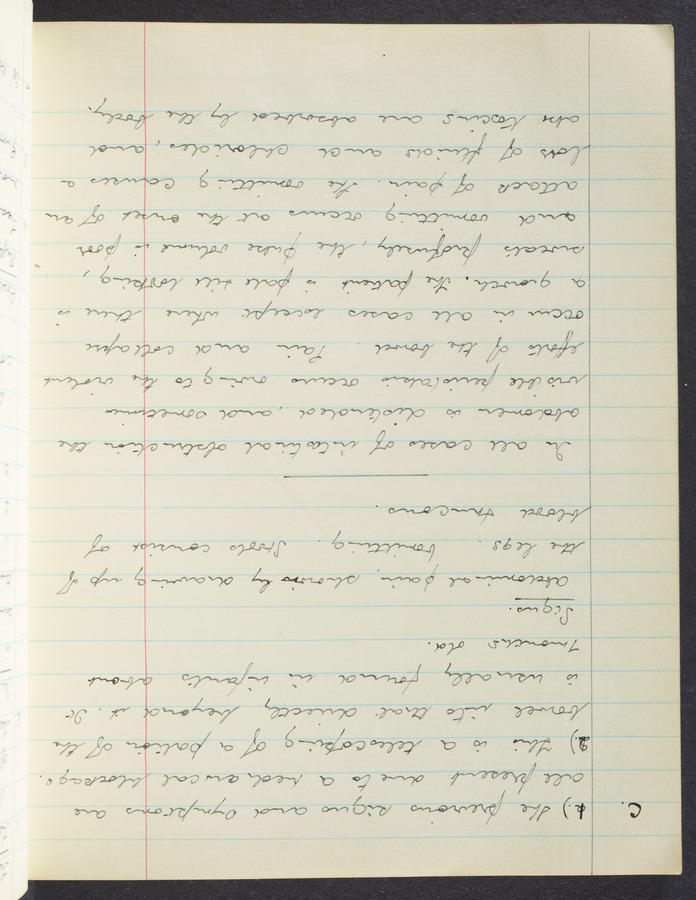 C. 1.) The previous signs and symptoms are
all present due to a mechanical blockage.
2.) This is a telescoping of a portion of the
bowel into that directly beyond it. It
is usually found in infants about
7 months old.
Signs.
Abdominal pain, shown by drawing up of
the legs. Vomiting. Stools consist of
blood & mucous.
In all cases of intestinal obstruction the
abdomen is distended, and sometimes
visible peristalsis occurs owing to the violent
efforts of the bowel. Pain and collapse
occur in all cases except where there is
a growth. The patient is pale & looking,
sweats profusely, the pulse volume is poor
and vomiting occurs at the onset of an
attack of pain. The vomiting causes a
loss of fluids and chlorides, and
also toxins are absorbed by the body.